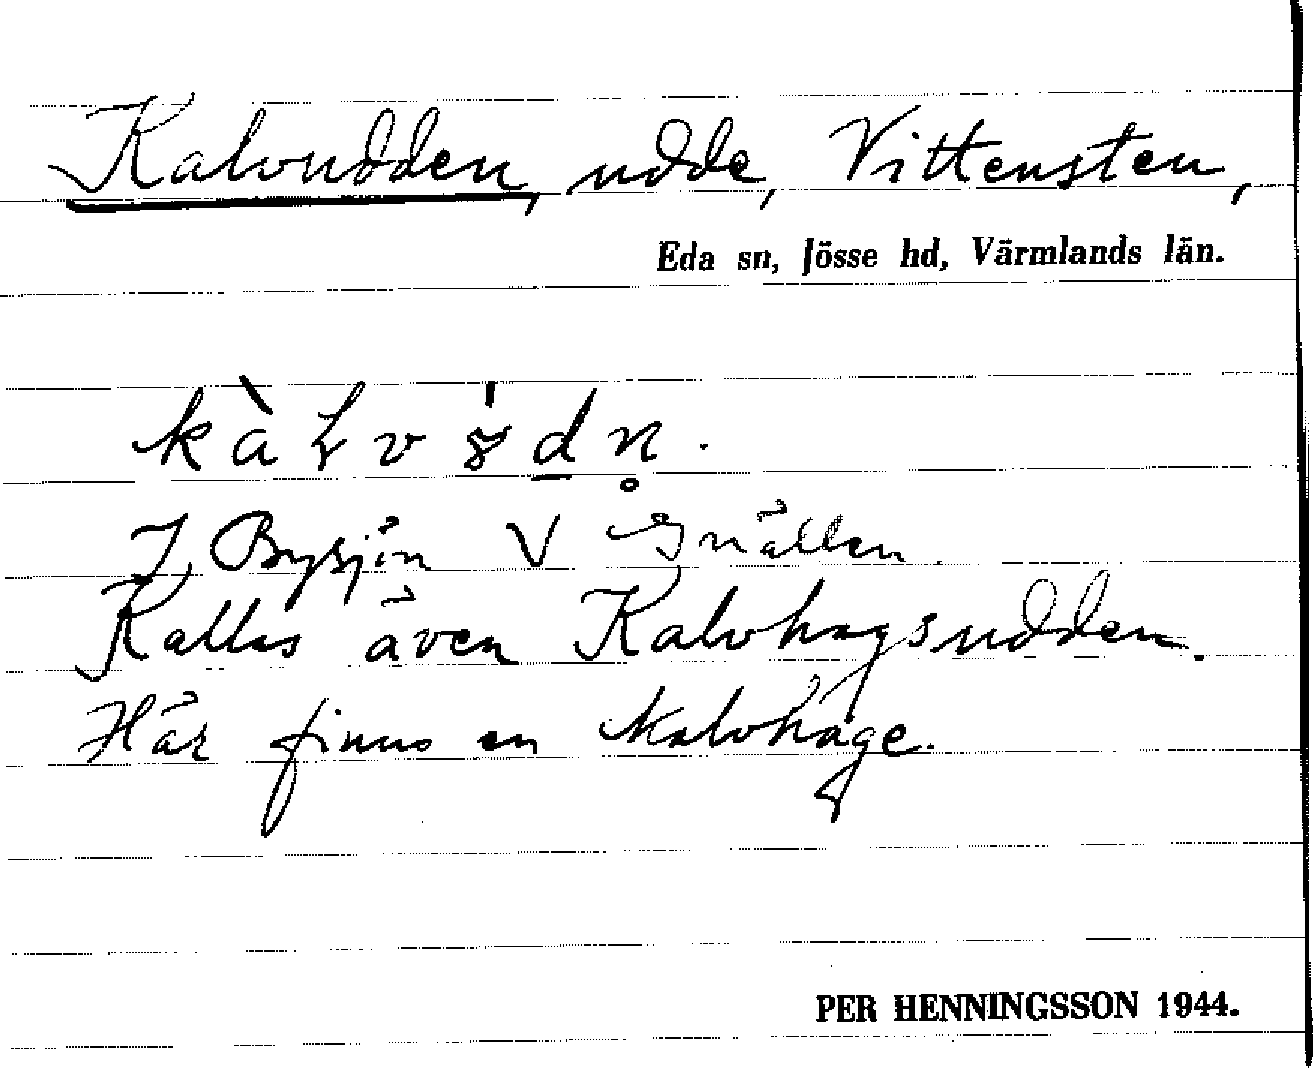 Kalvudden, udde, Vittensten,
Eda sn, Jösse hd, Värmlands län.
I Bysjön V Gnällen.
Kallas även Kalvhagsudden.
Här finns en kalvhage.
PER HENNINGSSON 1944.